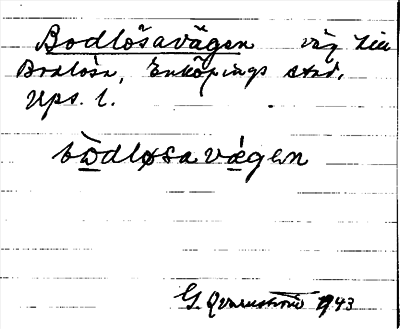 Bodlösavägen väg till
Bodlösa, Enköpings stad,
Ups. l.
bòdløsavägen
G. Qvarnström 1943